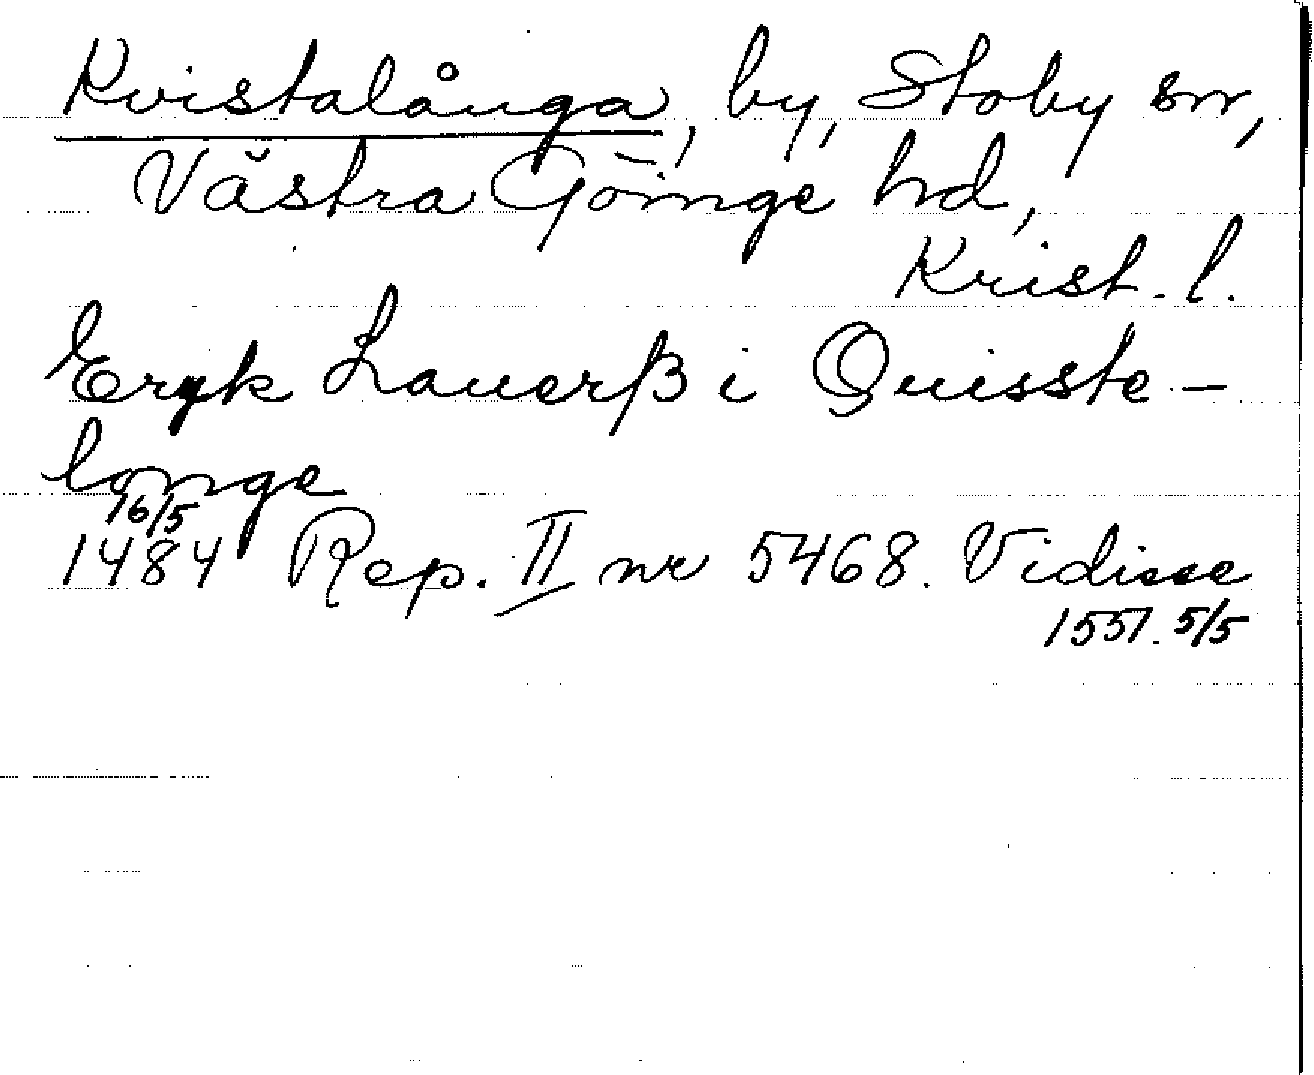 Kvistalånga, by, Stoby sn,
Västra Göinge hd,
Krist. l.
Eryk Lauerß i Quisste-
longe
16/5
1484 Rep. II nr 5468. Vidisse
1551. 5/5